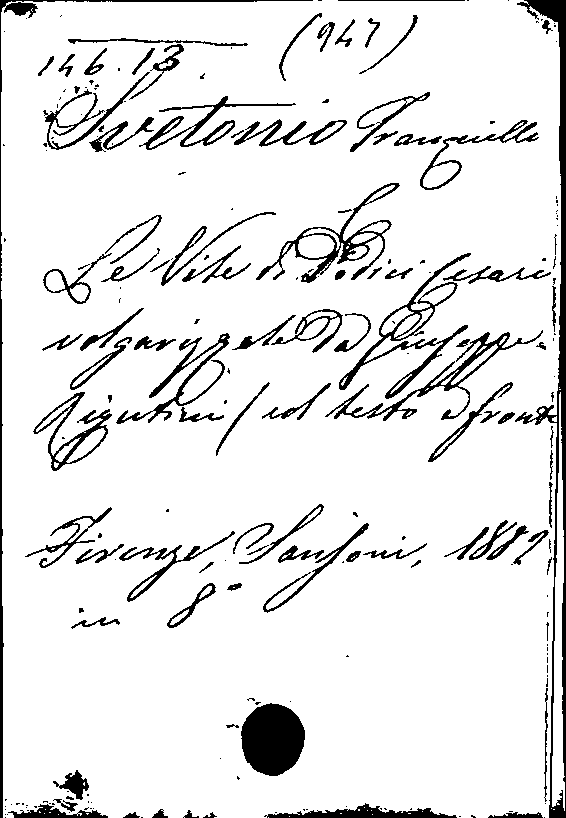 146.13. (947)
Svetonio Tranquillo
Le Vite di Dodici Cesari
volgarizzate da Giuseppe
Rigutini / col testo a fronte
Firenze, Sansoni, 1882
in 8°